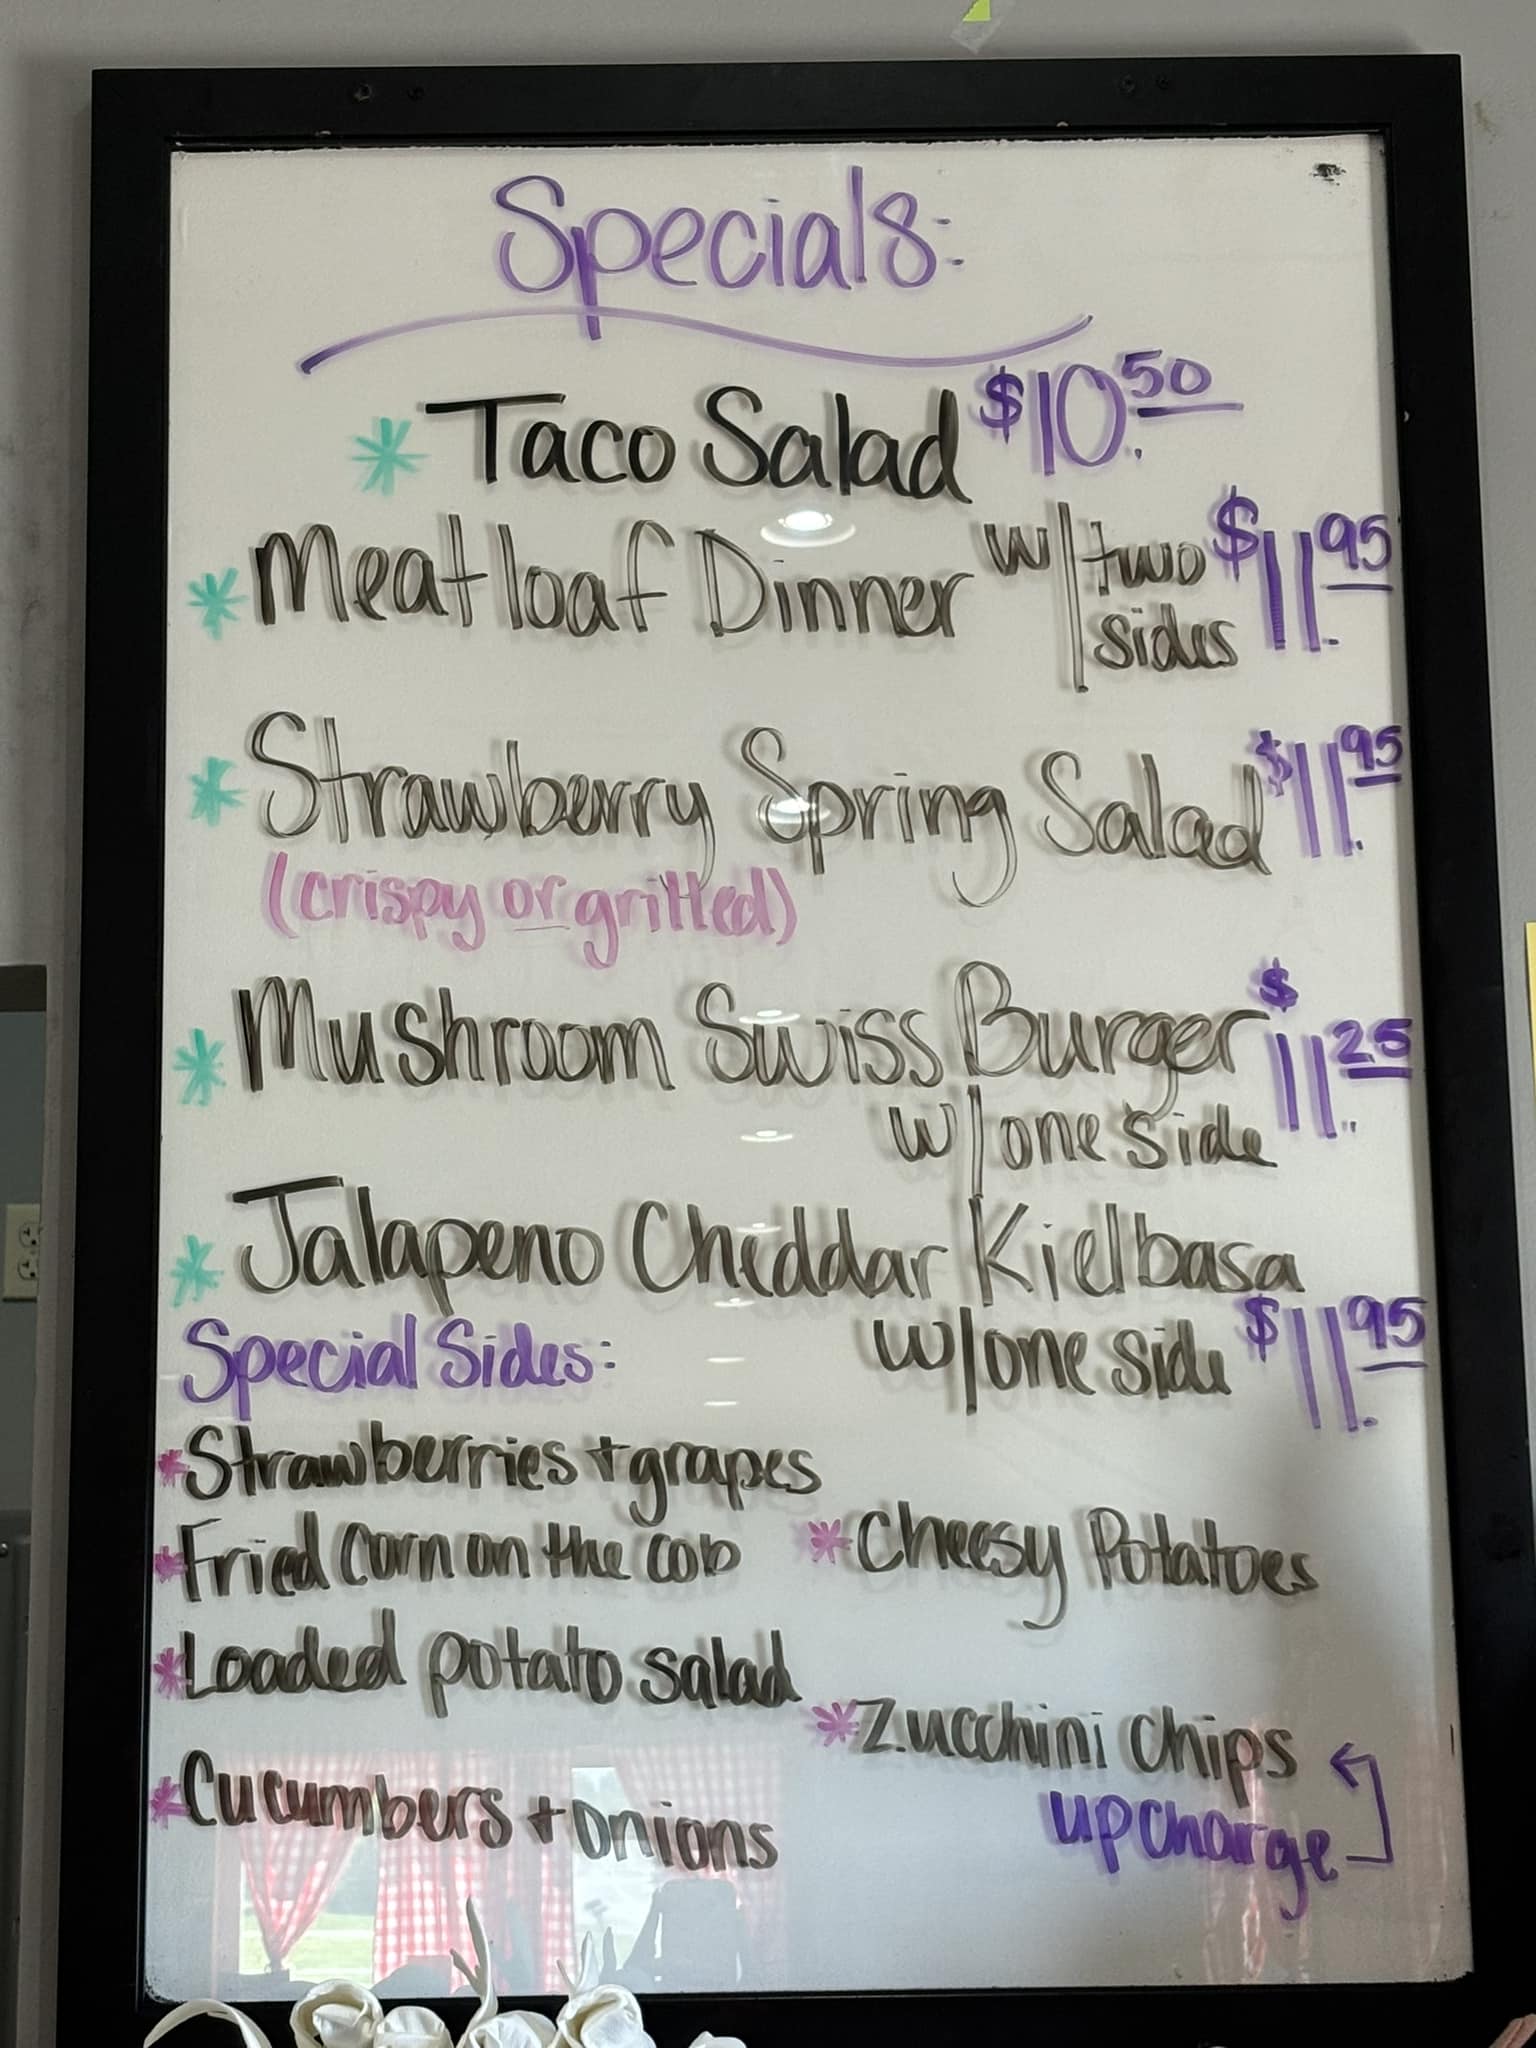 Specials:
* Taco Salad $10.50
* Meatloaf Dinner w/two sides $11.95
* Strawberry Spring Salad $11.95
(crispy or grilled)
* Mushroom Swiss Burger $11.25
w/one side
* Jalapeno Cheddar Kielbasa
w/one side $11.95
Special Sides:
* Strawberries + grapes
* Fried Corn on the cob
* Cheesy Potatoes
* Loaded potato salad
* Zucchini Chips
upcharge
* Cucumbers + onions